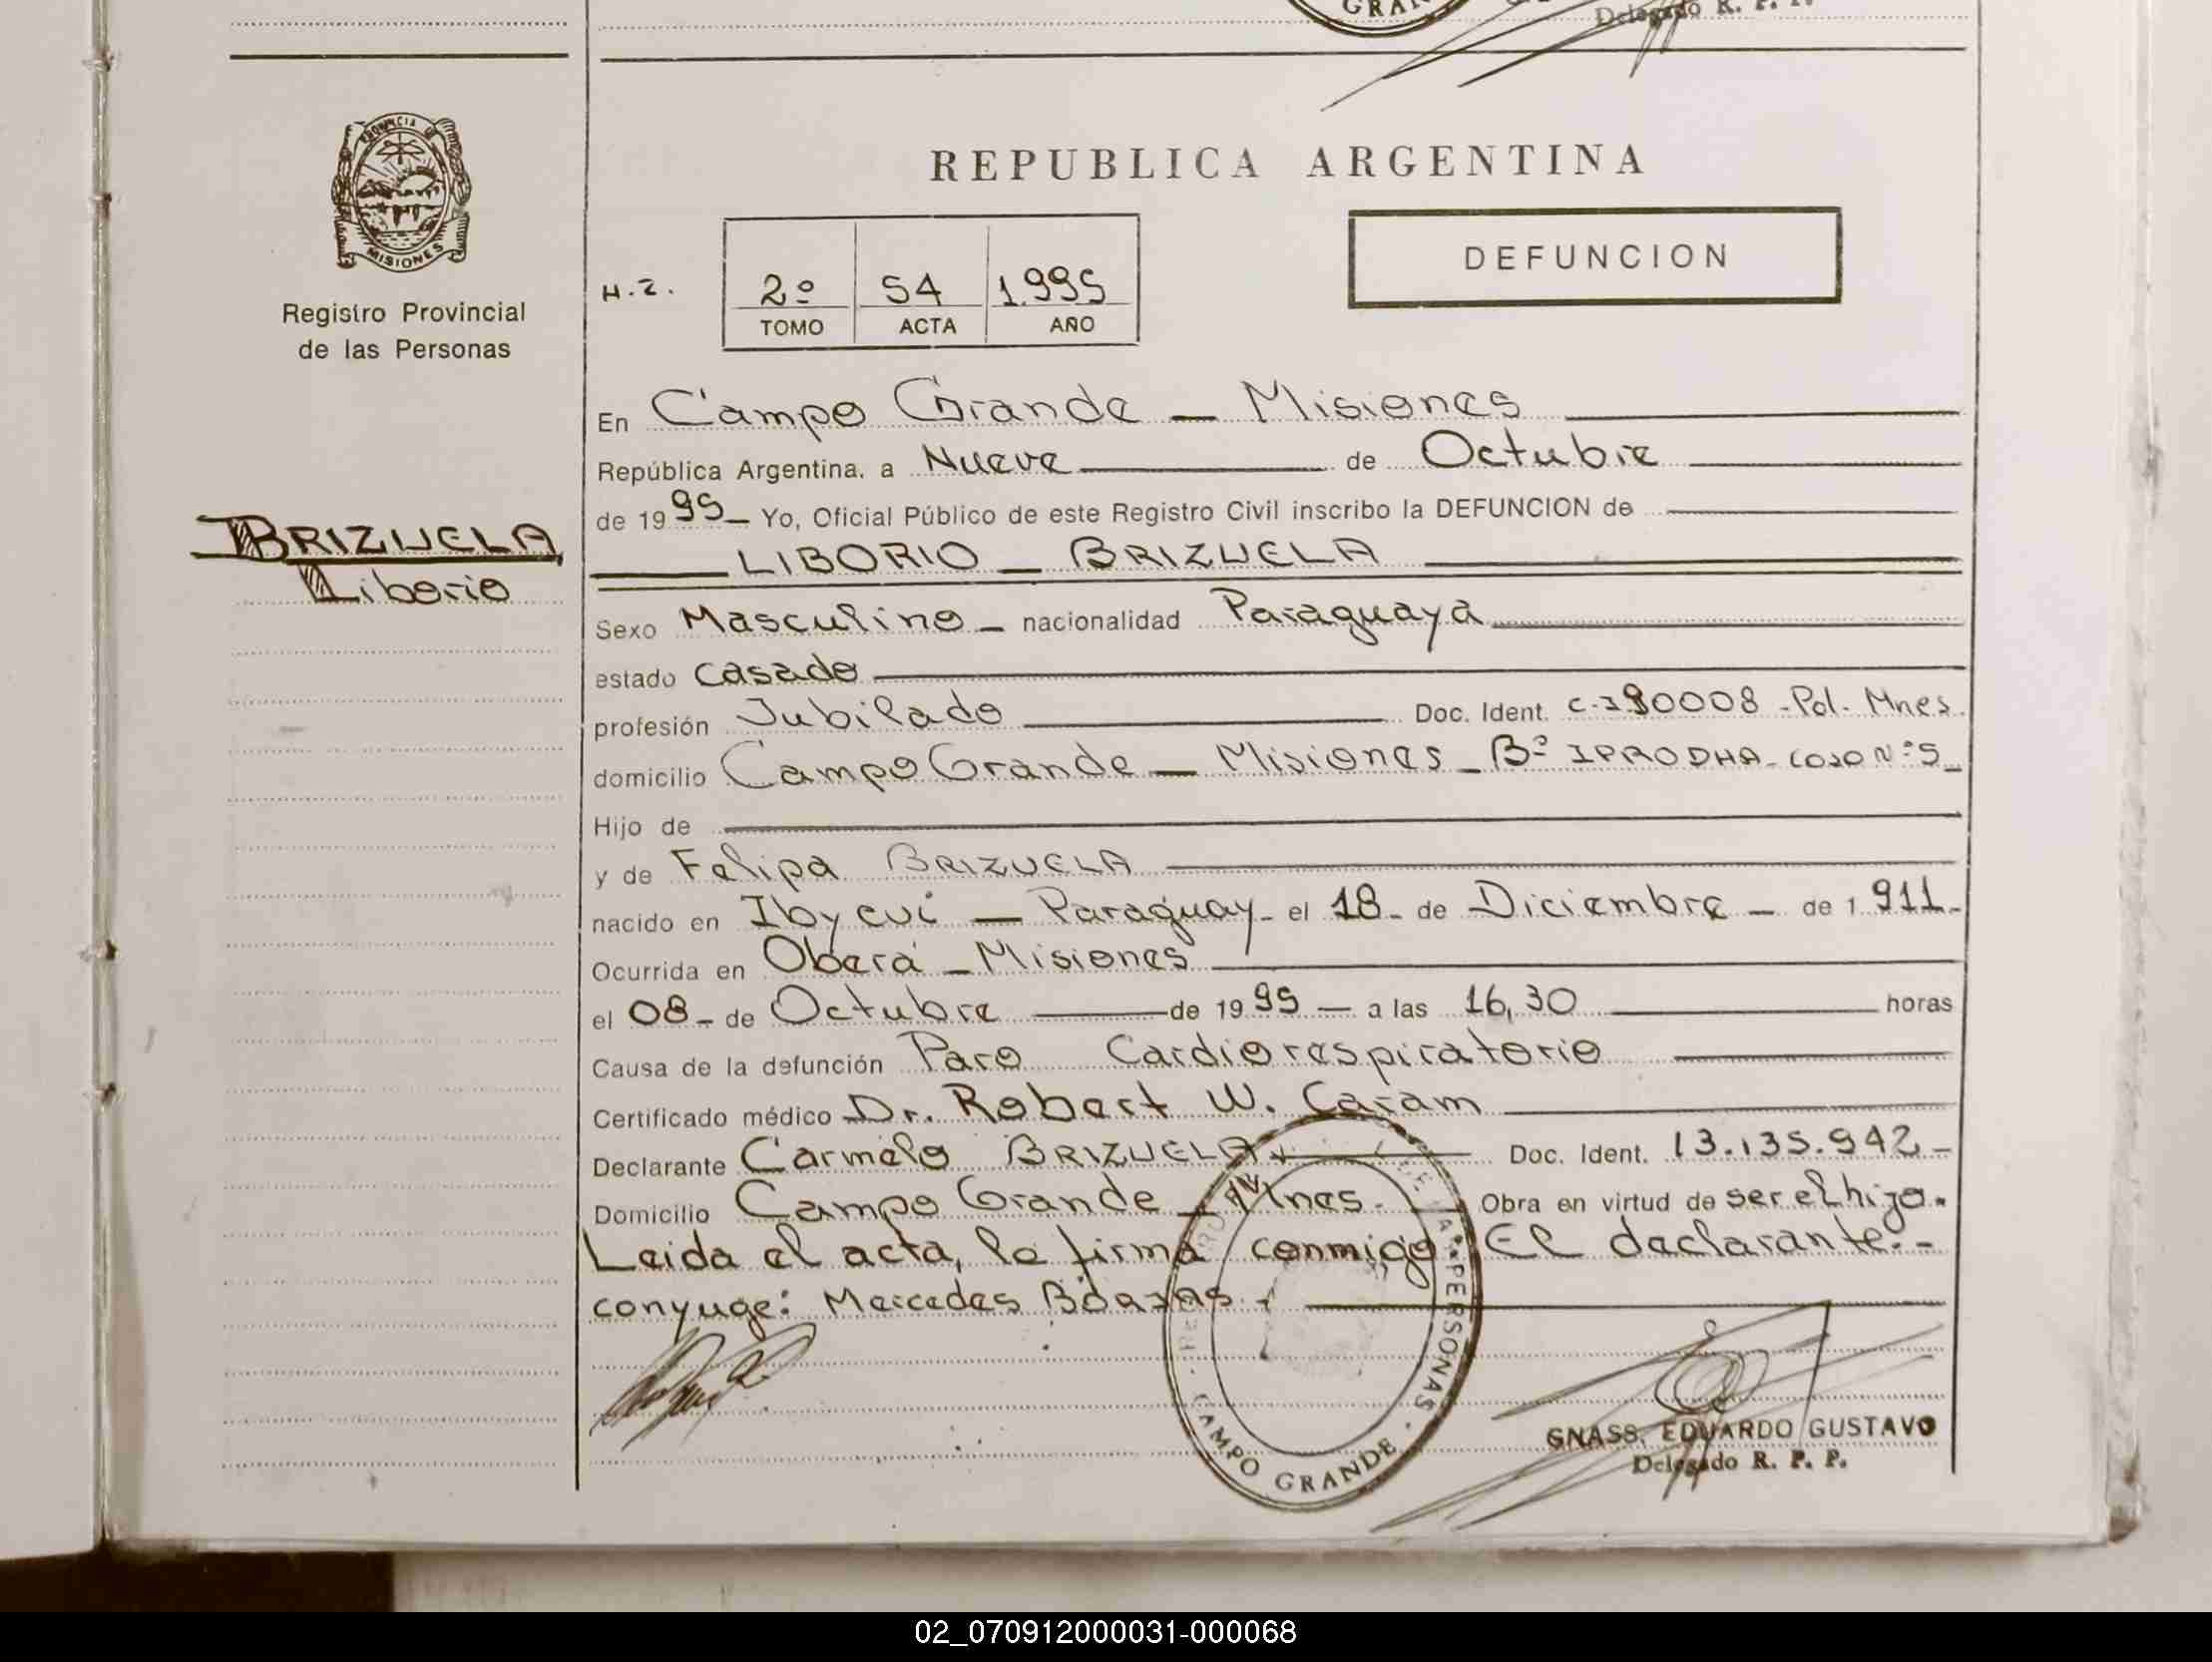 GRAN
Delegado R. P. P.
PROVINCIA DE
MISIONES
Registro Provincial
de las Personas
REPUBLICA ARGENTINA
DEFUNCION
H.2.
2º 54 1.995
TOMO ACTA AÑO
En Campo Grande — Misiones
República Argentina, a Nueve de Octubre
de 1995 — Yo, Oficial Público de este Registro Civil inscribo la DEFUNCION de
BRIZUELA
Liborio
LIBORIO — BRIZUELA
Sexo Masculino — nacionalidad Paraguaya
estado casado
profesión Jubilado Doc. Ident. C. 0008 - Pol. Mnes.
domicilio Campo Grande — Misiones — Bº IPRODHA - casa Nº 5 —
Hijo de
y de Felipa BRIZUELA
nacido en Ibycui — Paraguay - el 18 - de Diciembre — de 1.911 -
Ocurrida en Oberá — Misiones
el 08 - de Octubre de 1995 — a las 16,30 horas
Causa de la defunción Paro Cardiorespiratorio
Certificado médico Dr. Robert W. Caram
Declarante Carmelo BRIZUELA Doc. Ident. 13.135.942 —
Domicilio Campo Grande — Mnes. Obra en virtud de ser el hijo.
Leida el acta, la firma conmigo: El declarante. -
conyuge: Mercedes
PERSONAS - CAMPO GRANDE -
GNASS, EDUARDO GUSTAVO
Delegado R. P. P.
02_070912000031-000068